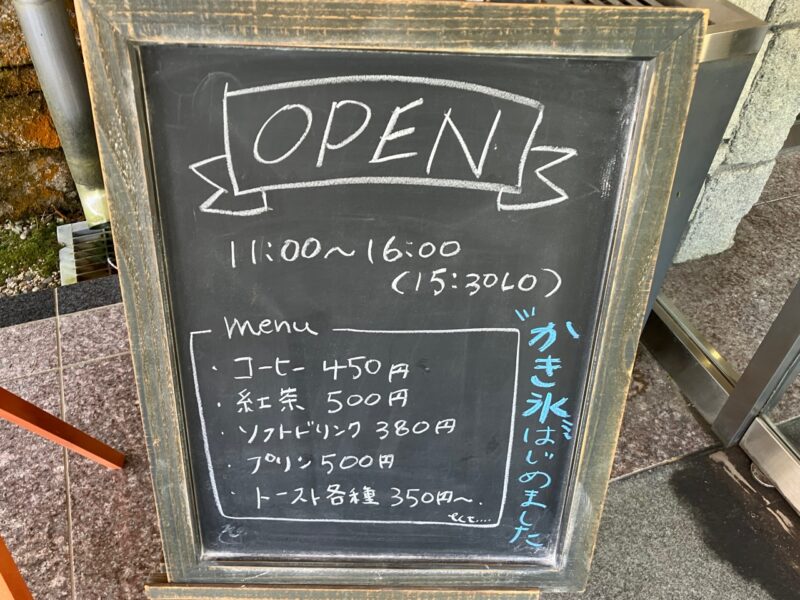 OPEN
11:00〜16:00
(15:30LO)
menu
・コーヒー 450円
・紅茶 500円
・ソフトドリンク 380円
・プリン 500円
・トースト各種 350円〜
etc....
かき氷はじめました